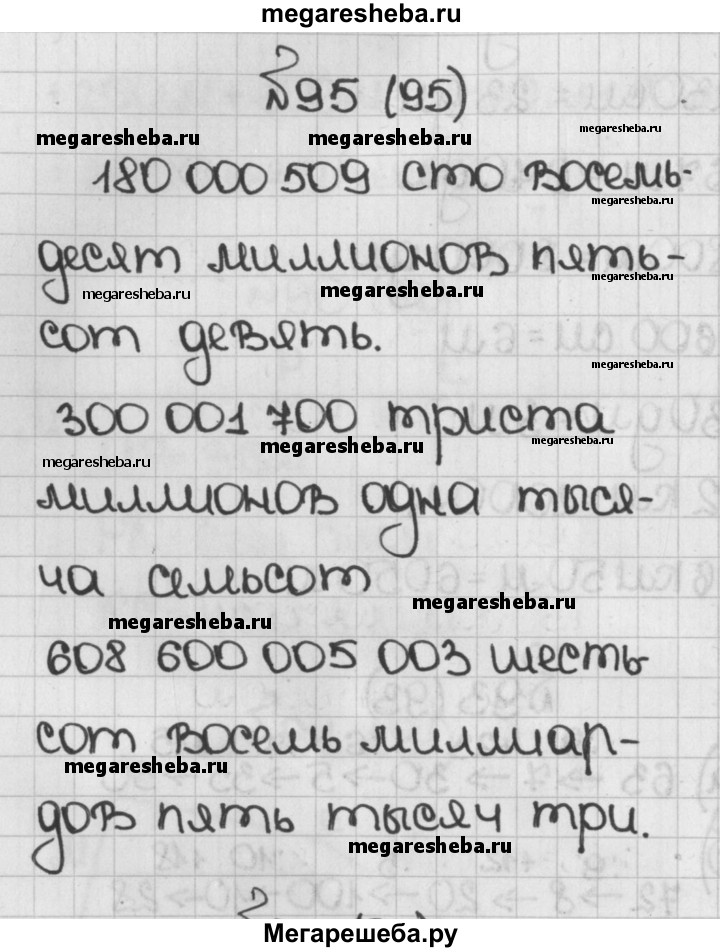 megaresheba.ru
№95 (95)
megaresheba.ru megaresheba.ru megaresheba.ru
180 000 509 сто восемь-
megaresheba.ru
десят миллионов пять-
megaresheba.ru megaresheba.ru megaresheba.ru
сот девять.
megaresheba.ru
300 001 700 триста
megaresheba.ru megaresheba.ru megaresheba.ru
миллионов одна тыся-
ча семьсот
megaresheba.ru megaresheba.ru
608 600 005 003 шесть
сот восемь миллиар-
megaresheba.ru
дов пять тысяч три.
megaresheba.ru
Мегарешеба.ру